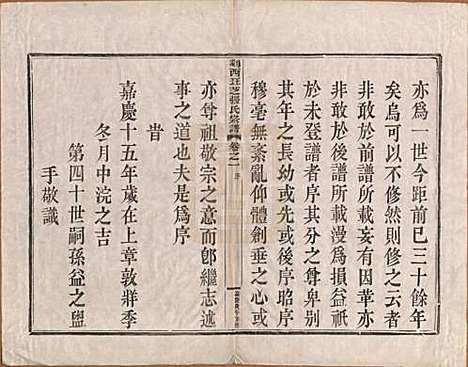 亦爲一世今距前已三十餘年
矣烏可以不修然則修之云者
非敢於前譜所載妄有因革亦
非敢於後譜所載漫爲損益祇
於未登譜者序其分之尊卑別
其年之長幼或以齒序昭序
穆毫無紊亂仰體創垂之心或
西 芝 張氏宗譜 卷之一 序
亦尊祖敬宗之意而卽繼志述
事之道也夫是爲序
旹
嘉慶十五年歲在上章敦牂季
冬月中浣之吉
第四十世嗣孫益之盥
手敬識